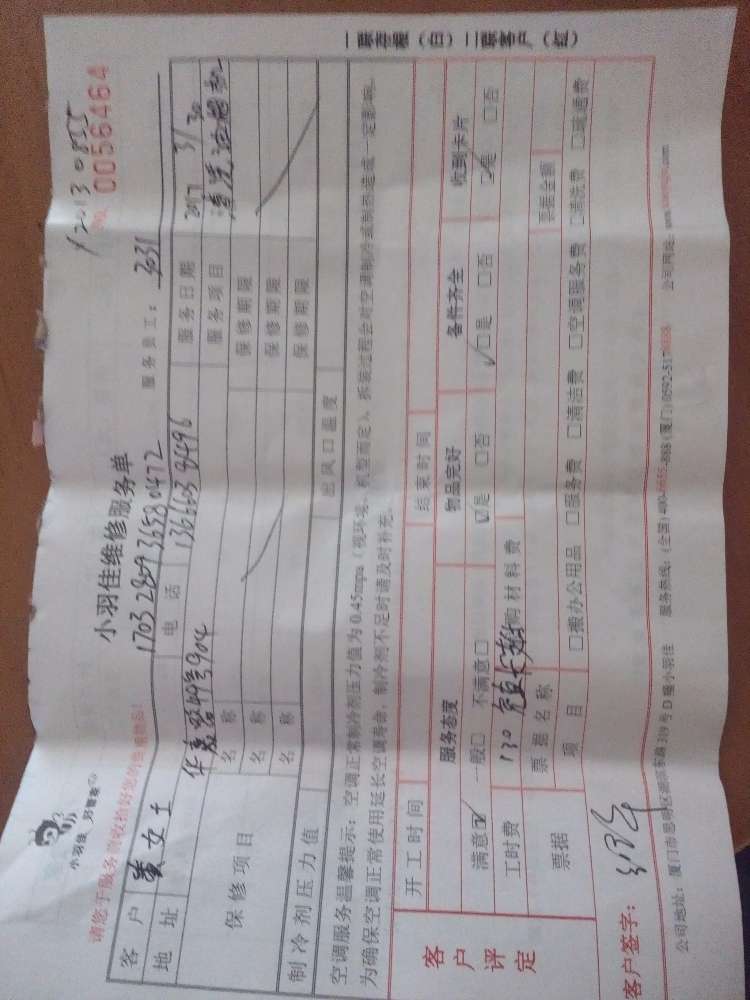 一联存根（白）二联客户（红）
小羽佳 好管家
小羽佳维修服务单
1703280936580472
服务员工：3031
No. 0056464
请您于服务前收拾好您的贵重物品！
客户 黄女士 电话 13666038496 服务日期 2017 3/30
地址 49号904 服务项目 清洗油烟机
保修项目 名称 保修期限
名称 保修期限
名称 保修期限
制冷剂压力值 出风口温度
空调服务温馨提示：空调正常制冷剂压力值为0.45mpa（视环境、机型而定），拆装过程会对空调制冷或制热造成一定影响。
为确保空调正常使用延长空调寿命，制冷剂不足时请及时补充。
客户评定
开工时间 结束时间
服务态度 物品完好 备件齐全 收到卡片
满意☑ 一般□ 不满意□ ☑是 □否 ☑是 □否 ☑是 □否
工时费 130 购材料费
票据 票据名称 票据金额
项目 □搬办公用品 □服务费 □清洁费 □空调服务费 □清洗费 □疏通费
客户签字：
公司地址：厦门市思明区湖滨东路319号D幢小羽佳 服务热线：(全国)400-6655-8888 (厦门)0592-517 公司网址：